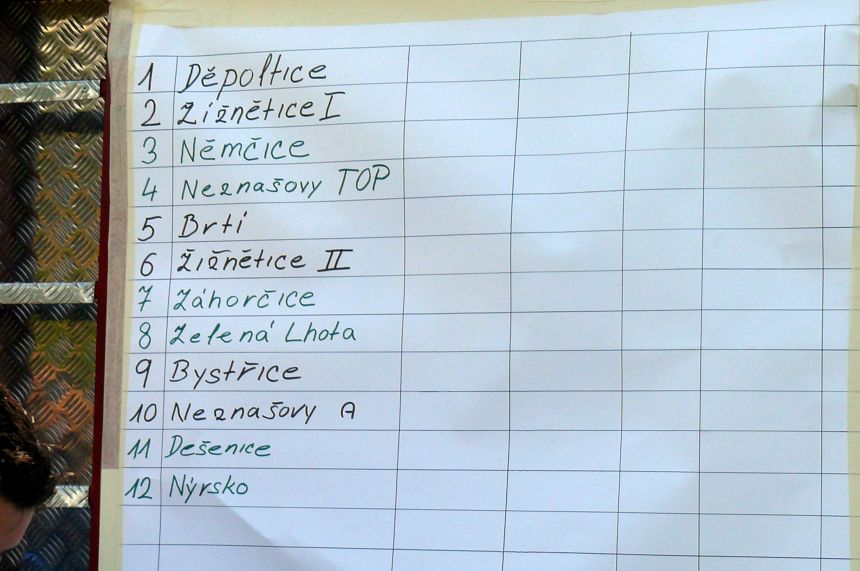 1 Děpoltice
2 Žižnětice I
3 Němčice
4 Neznašovy TOP
5 Brtí
6 Žižnětice II
7 Záhorčice
8 Zelená Lhota
9 Bystřice
10 Neznašovy A
11 Dešenice
12 Nýrsko